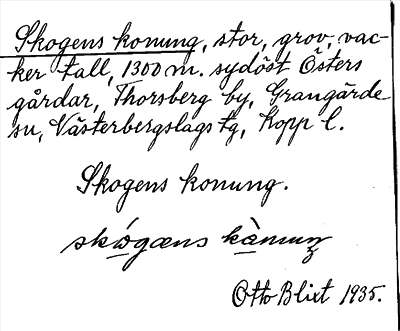 Skogens konung, stor, grov, vac-
ker tall, 1300 m. sydöst Östers
gårdar, Thorsberg by, Grangärde
sn, Västerbergslags tg, Kopp. l.
Skogens konung.
skógæns kànuŋ
Otto Blixt 1935.